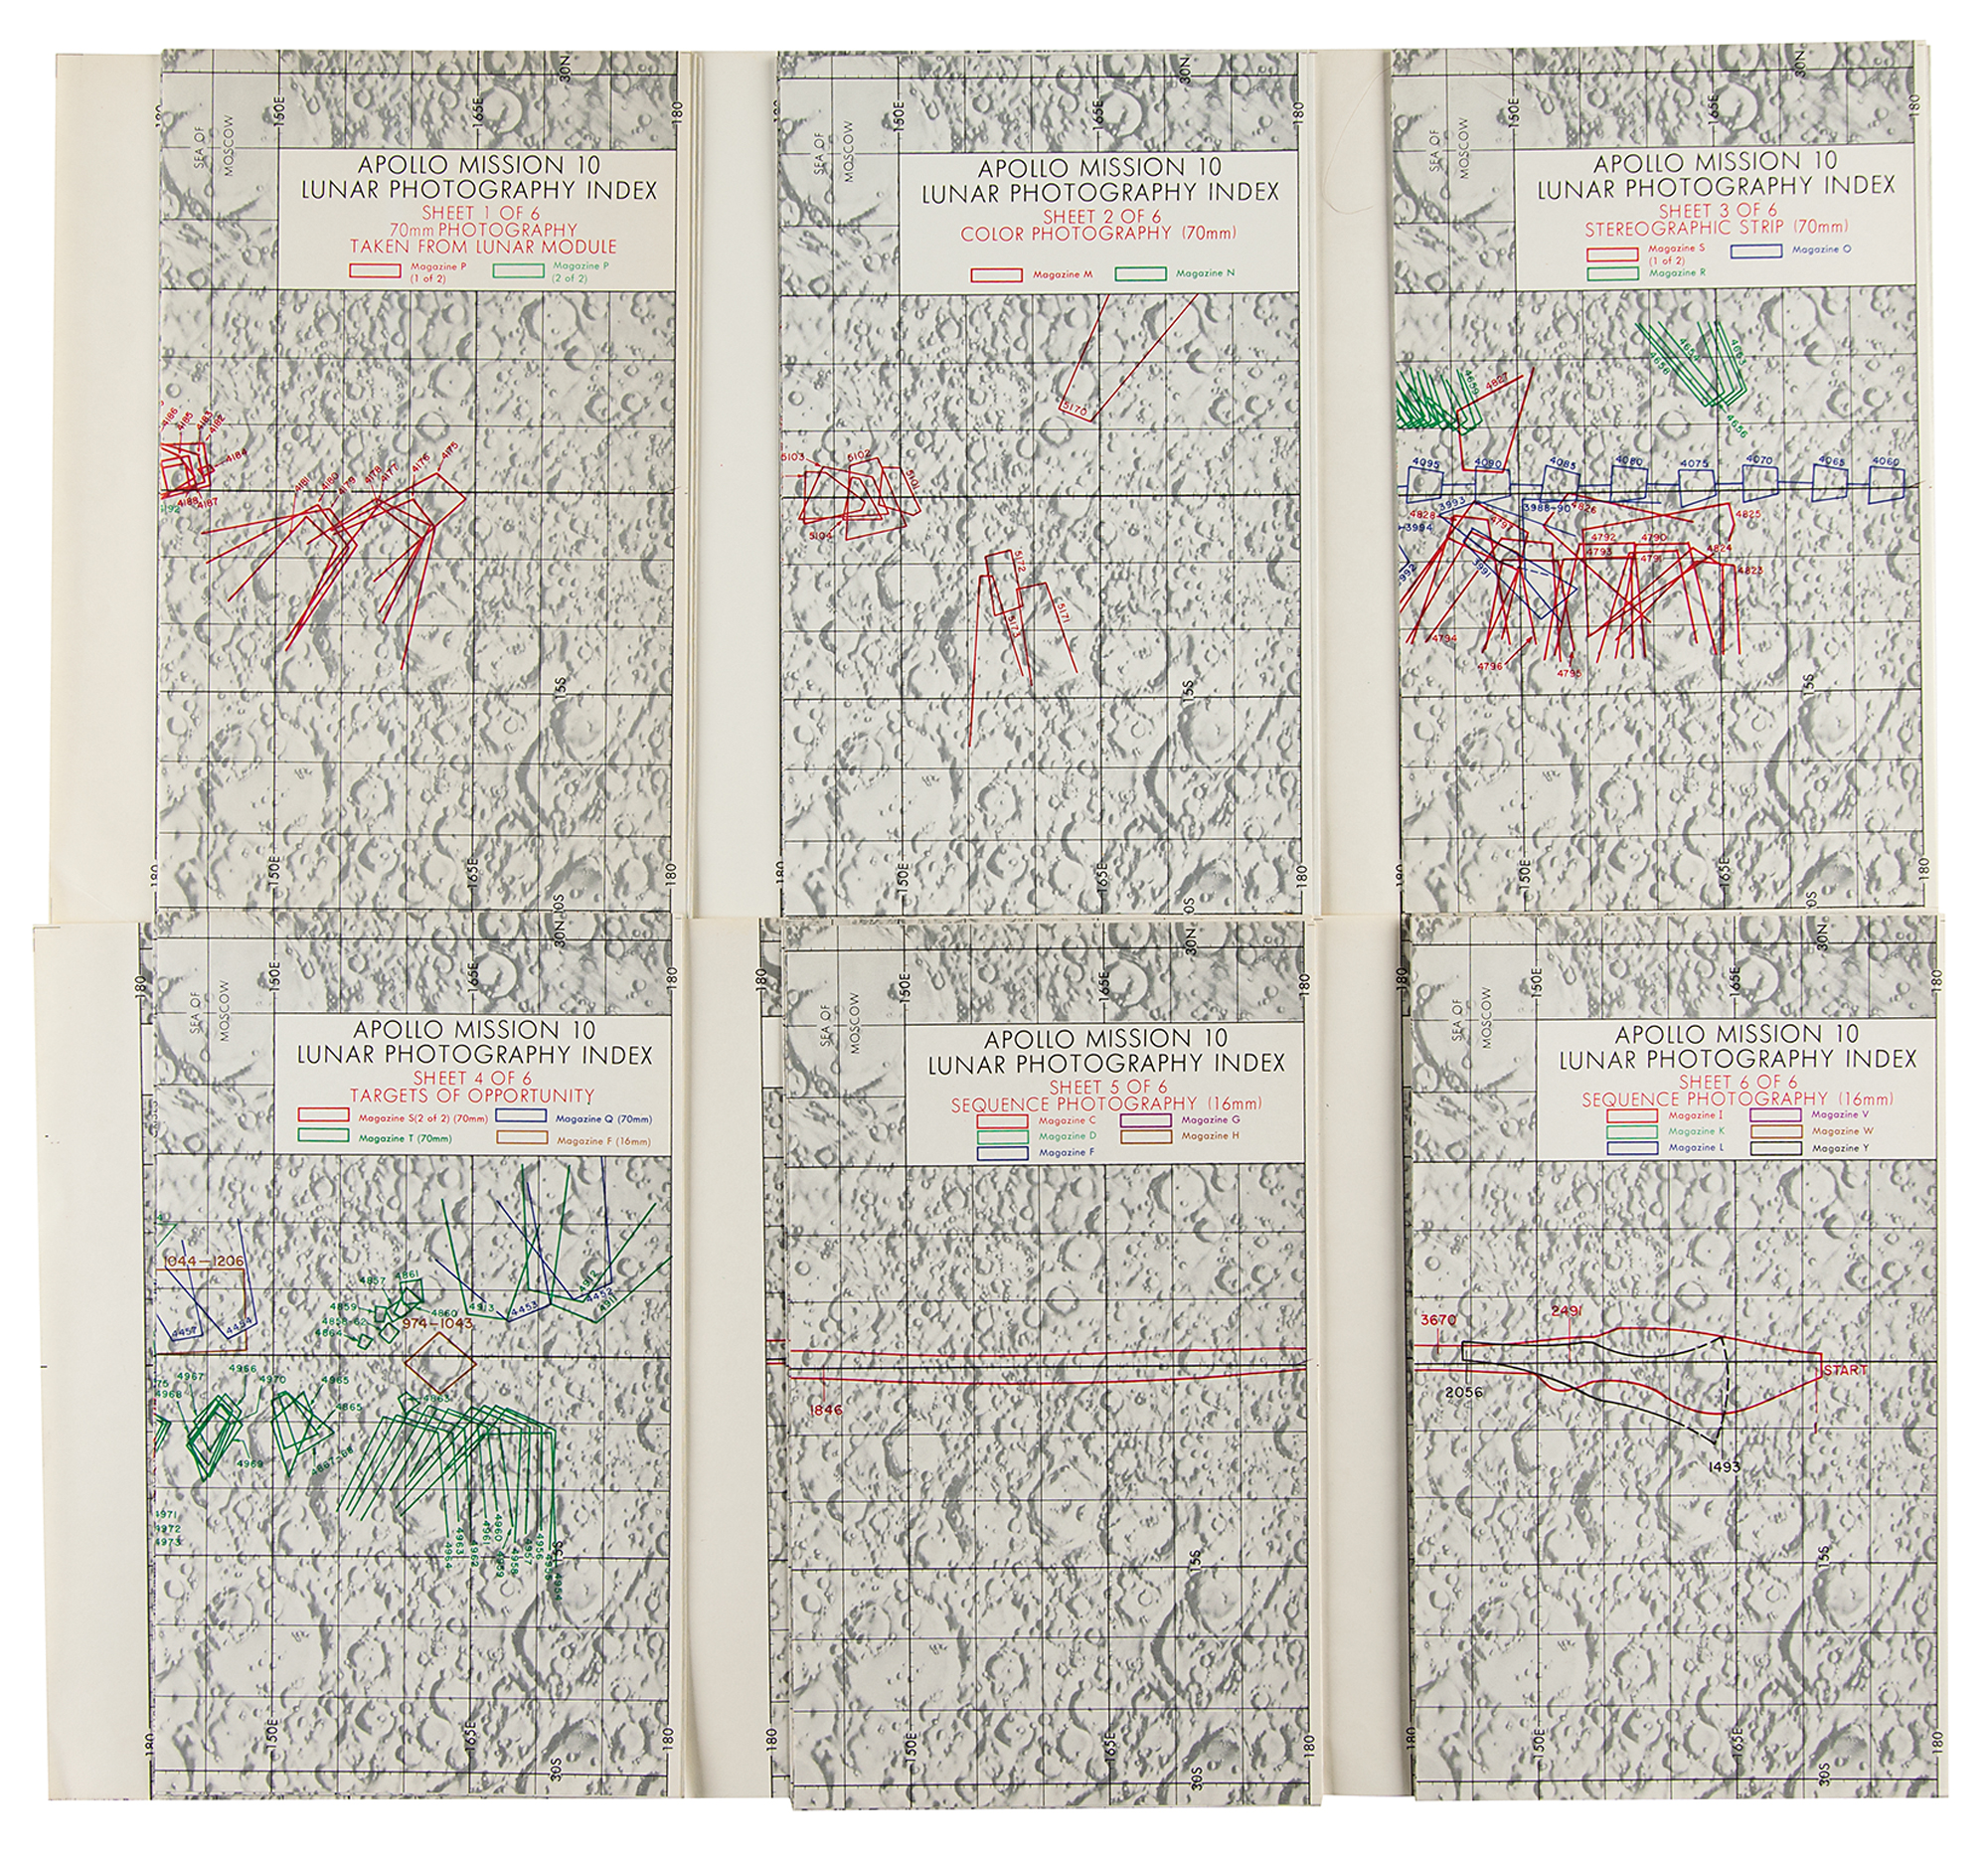 30N
150E
165E
180
180
SEA OF
MOSCOW
APOLLO MISSION 10
LUNAR PHOTOGRAPHY INDEX
SHEET 1 OF 6
70mm PHOTOGRAPHY
TAKEN FROM LUNAR MODULE
Magazine P
(1 of 2)
Magazine P
(2 of 2)
4186
4185
4183
4182
4184
4188
4187
4181
4180
4179
4178
4177
4176
4175
15S
180
150E
165E
180
30N
150E
165E
180
SEA OF
MOSCOW
APOLLO MISSION 10
LUNAR PHOTOGRAPHY INDEX
SHEET 2 OF 6
COLOR PHOTOGRAPHY (70mm)
Magazine M
Magazine N
5170
5103
5102
5101
5104
5172
5171
5173
15S
180
150E
165E
180
30N
150E
165E
180
SEA OF
MOSCOW
APOLLO MISSION 10
LUNAR PHOTOGRAPHY INDEX
SHEET 3 OF 6
STEREOGRAPHIC STRIP (70mm)
Magazine S
(1 of 2)
Magazine O
Magazine R
4654
4653
4658
4656
4659
4827
4095
4090
4085
4080
4075
4070
4065
4060
3993
3988-90
4826
4825
4828
3994
4797
4792
4790
4793
4791
4824
4823
3991
3992
4794
4796
4795
15S
180
150E
165E
180
30N
180
150E
165E
180
SEA OF
MOSCOW
APOLLO MISSION 10
LUNAR PHOTOGRAPHY INDEX
SHEET 4 OF 6
TARGETS OF OPPORTUNITY
Magazine S(2 of 2) (70mm)
Magazine Q (70mm)
Magazine T (70mm)
Magazine F (16mm)
1044-1206
4857
4861
4859
4860
4858-62
4864
974-1043
4457
4454
4913
4453
4912
4452
4911
4966
4967
4968
4970
4965
4863
4865
4969
4971
4972
4973
4964
4963
4962
4961
4960
4959
4958
4957
4956
4955
4954
15S
180
150E
165E
180
30S
30N
180
150E
165E
180
SEA OF
MOSCOW
APOLLO MISSION 10
LUNAR PHOTOGRAPHY INDEX
SHEET 5 OF 6
SEQUENCE PHOTOGRAPHY (16mm)
Magazine C
Magazine G
Magazine D
Magazine H
Magazine F
1846
15S
180
150E
165E
180
30S
30N
180
150E
165E
180
SEA OF
MOSCOW
APOLLO MISSION 10
LUNAR PHOTOGRAPHY INDEX
SHEET 6 OF 6
SEQUENCE PHOTOGRAPHY (16mm)
Magazine I
Magazine V
Magazine K
Magazine W
Magazine L
Magazine Y
3670
2491
START
2056
1493
15S
180
150E
165E
180
30S